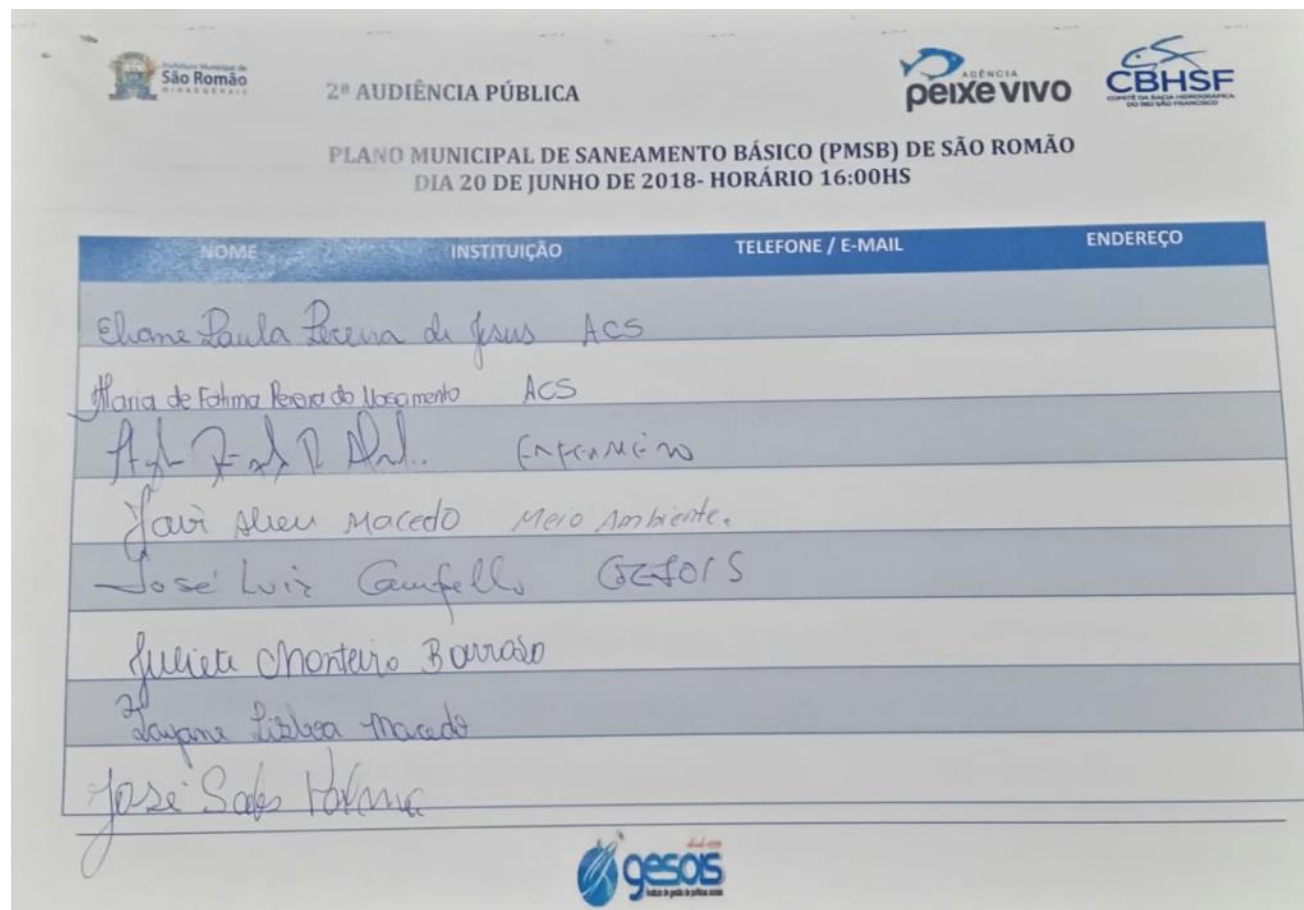 Prefeitura Municipal de
São Romão
MINAS GERAIS
2ª AUDIÊNCIA PÚBLICA
AGÊNCIA
peixe vivo
CBHSF
COMITÊ DA BACIA HIDROGRÁFICA
DO RIO SÃO FRANCISCO
PLANO MUNICIPAL DE SANEAMENTO BÁSICO (PMSB) DE SÃO ROMÃO
DIA 20 DE JUNHO DE 2018- HORÁRIO 16:00HS
NOME INSTITUIÇÃO TELEFONE / E-MAIL ENDEREÇO
Eliane Paula Pereira de Jesus ACS
Maria de Fatima Pereira do Nascimento ACS
Enfermeiro
Macedo Meio Ambiente.
José Luiz Campello GESOIS
Juliete Monteiro Barroso
Tayane Lisboa Macedo
José Sales Palma
gesois